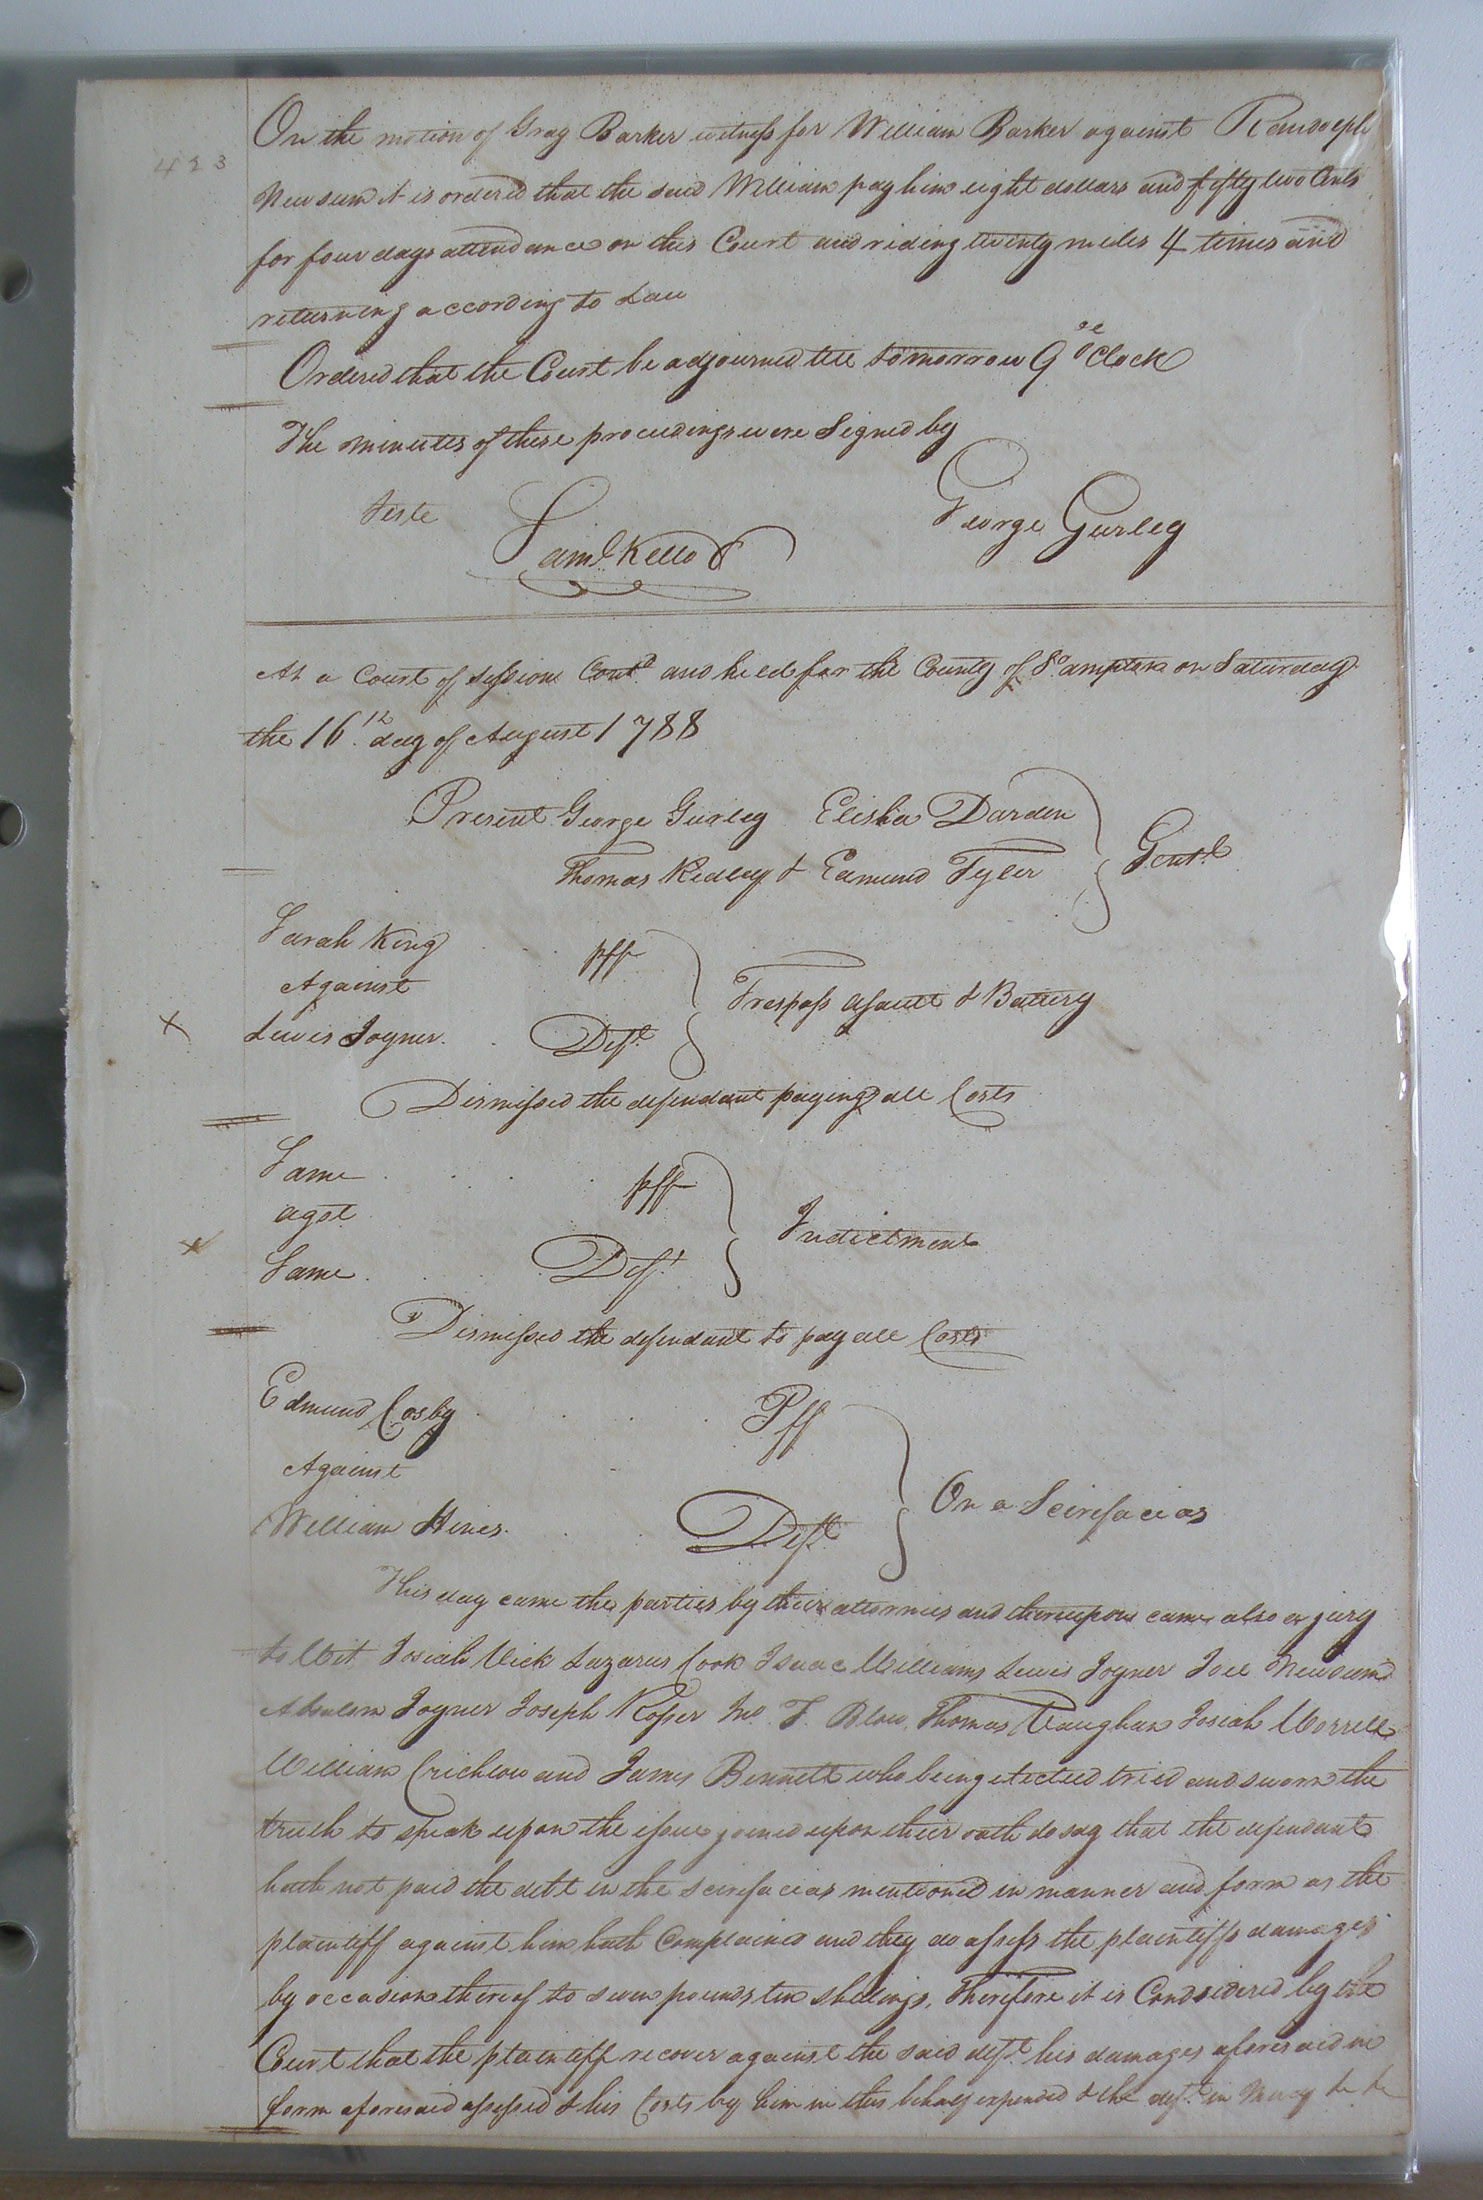 423
On the motion of Gray Barker witness for William Barker against Randolph
Newsum it is ordered that the said William pay him eight dollars and fifty two Cents
for four days attendance on this Court and riding twenty miles 4 times and
returning according to Law
Ordered that the Court be adjourned till tomorrow 9 oClock
The minutes of these proceedings were Signed by
Teste Saml Kello George Gurley
At a Court of session Contd and held for the County of So.ampton on Saturday
the 16th day of August 1788
Present George Gurley Elisha Darden
Thomas Ridley & Edmund Tyler Gentl
Sarah King pff
Against Trespass assault & Battery
Lewis Joyner Deft
Dismissed the defendant paying all Costs
Same pff
agst Indictment
Same Deft
Dismissed the defendant to pay all Costs
Edmund Cosby Pff
Against On a Scirefacias
William Hines Deft
This day came the parties by their attornies and thereupon came also a jury
to Wit Josiah Vick Lazarus Cook Isaac Williams Lewis Joyner Joel Newsum
Absalom Joyner Joseph Roper Jno. T. Blow, Thomas Vaughan Josiah Worrell
William Crichlow and James Bennett who being elected tried and sworn the
truth to speak upon the issue joined upon their oath do say that the defendant
hath not paid the debt in the scirefacias mentioned in manner and form as the
plaintiff against him hath Complained and they do assess the plaintiffs damages
by occasion thereof to seven pounds ten shilings, Therefore it is Considered by the
Court that the plaintiff recover against the said deft. his damages aforesaid in
form aforesaid assessed & his Costs by him in this behalf expended & the deft. in Mercy &c &c